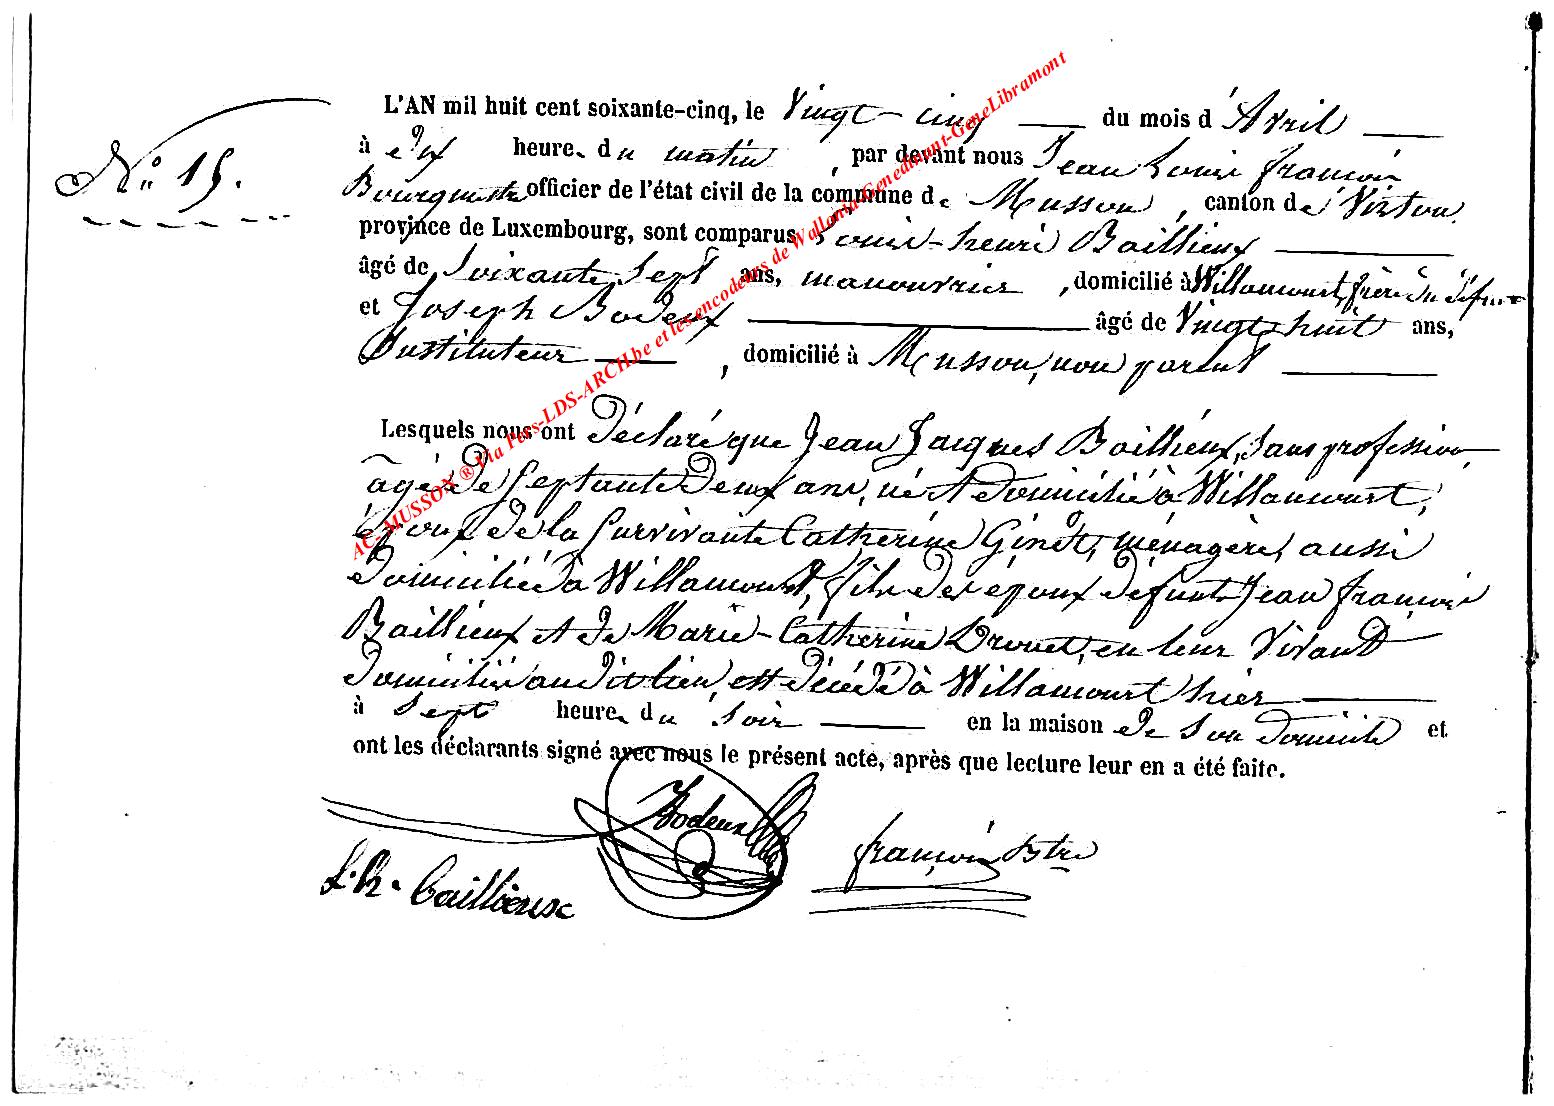 N° 15.
L'AN mil huit cent soixante-cinq, le Vingt-cinq du mois d'Avril
à dix heures du matin, par devant nous Jean Louis françois
Bourgmestre officier de l'état civil de la commune de Musson, canton de Virton,
province de Luxembourg, sont comparus Louis-henri Baillieux
âgé de soixante sept ans, manouvrier, domicilié à Willancourt, frère du défunt
et Joseph Bodeux âgé de Vingt huit ans,
Instituteur, domicilié à Musson, non parent
Lesquels nous ont déclaré que Jean Jacques Baillieux, sans profession,
âgé de septante deux ans, né et domicilié à Willancourt,
époux de la survivante Catherine Ginet, ménagère, aussi
domiciliée à Willancourt, fils des époux défunts Jean françois
Baillieux et de Marie-Catherine Drouet, en leur vivant
domiciliés au dit lieu, est décédé à Willancourt hier
à sept heures du soir en la maison de son domicile et
ont les déclarants signé avec nous le présent acte, après que lecture leur en a été faite.
Bodeux
L. h. Baillieux
françois Btre
AC-MUSSON ® Via Pers-LDS-ARCH.be et les encodeurs de Wallonia-Genedinant-GeneLibramont